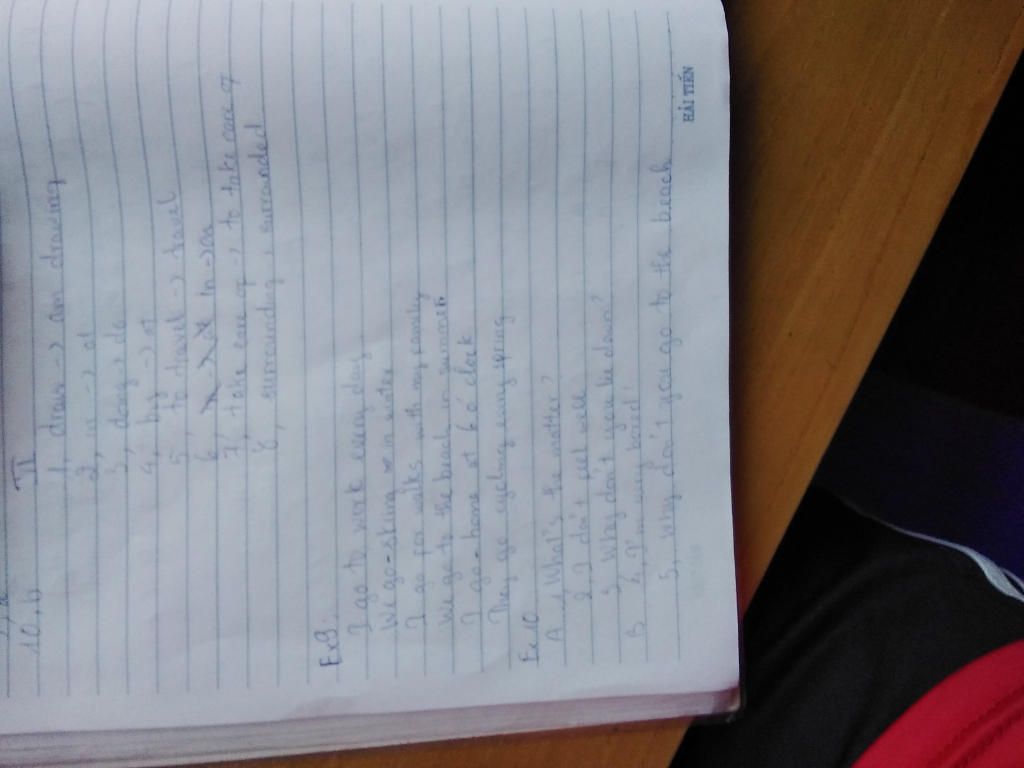 10, b
II
1, draw -> an drawing
2, in -> at
3, doing -> do
4, by -> at
5, to travel -> travel
6, in -> on
7, take care of -> to take care of
8, surrounding, surrounded
Ex9.
I go to work every day
We go-skiing in winter
I go for walks with my family
We go to the beach in summer
I go-home at 6 o' clock
They go cycling every spring
Ex10
A 1, What's the matter?
2, I don't feel well
3, Why don't you lie down?
B 4, I'm very bored!
5, Why don't you go to the beach
HẢI TIẾN